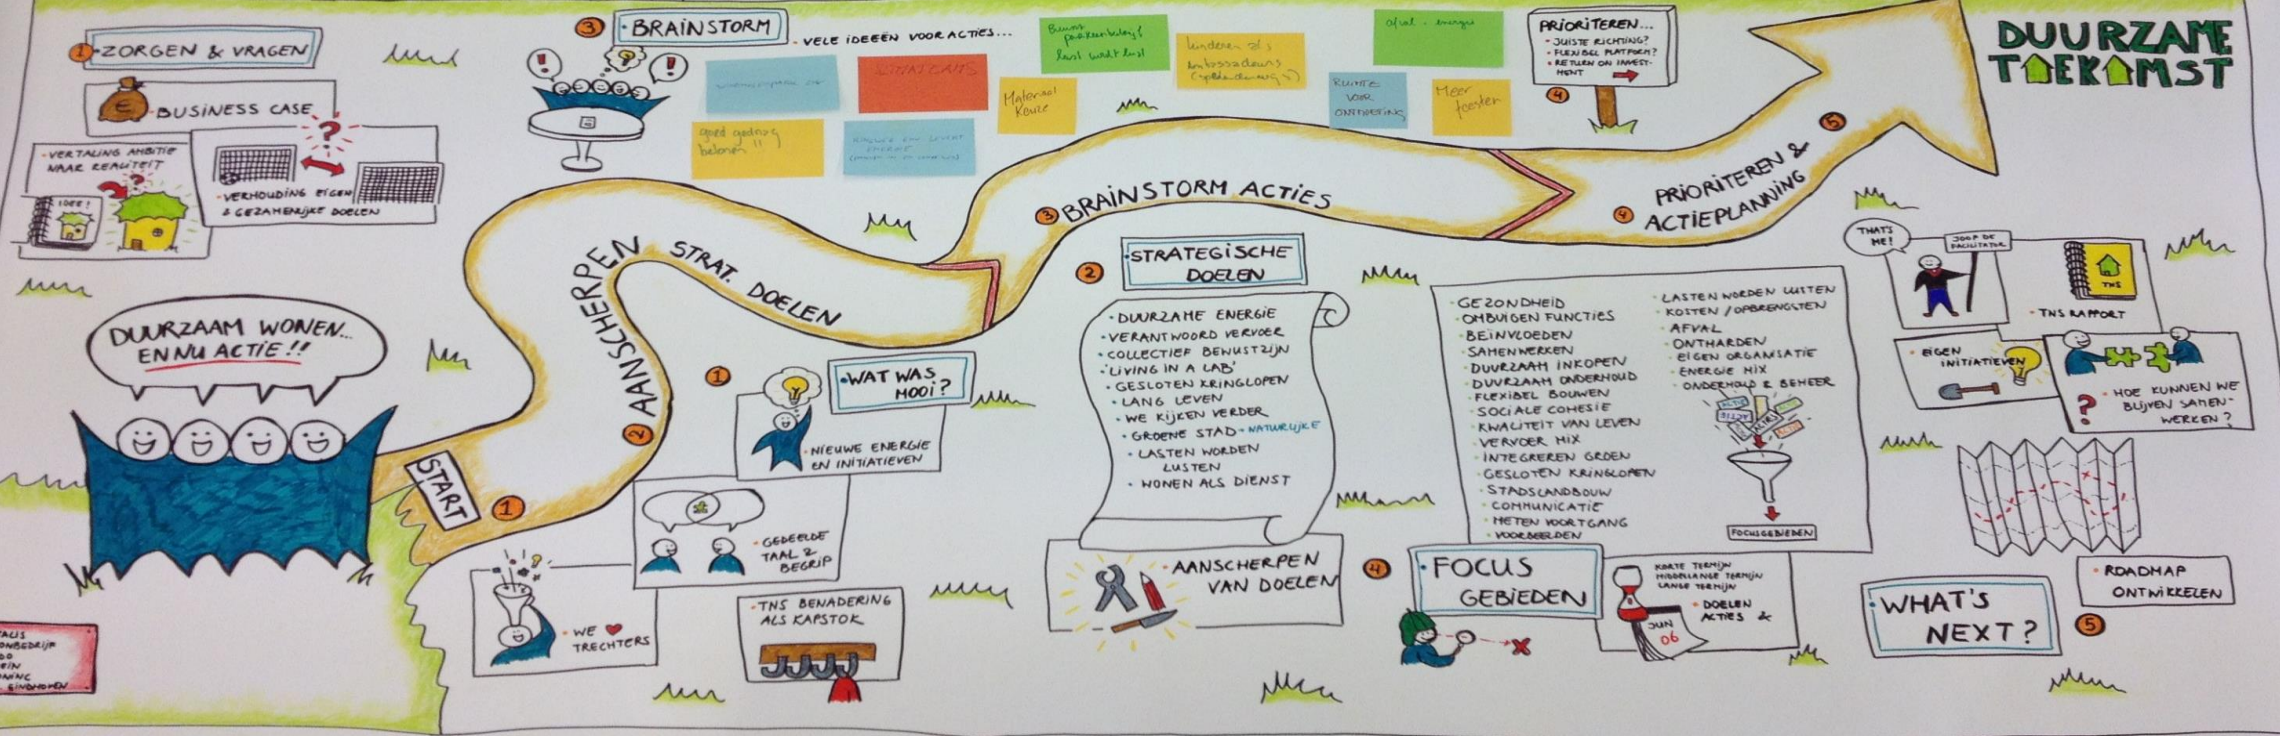 1 ZORGEN & VRAGEN
BUSINESS CASE
VERTALING AMBITIE
NAAR REALITEIT
IDEE!
VERHOUDING EIGEN
& GEZAMENLIJKE DOELEN
3 BRAINSTORM
VELE IDEEËN VOOR ACTIES...
goed gedrag
belonen !!
Materiaal
Keuze
kinderen als
Ambassadeurs
afval - energie
RUIMTE
VOOR
ONTMOETING
Meer
feesten
PRIORITEREN...
JUISTE RICHTING?
FLEXIBEL PLATFORM?
RETURN ON INVEST-
MENT
4
DUURZAME
TOEKOMST
DUURZAAM WONEN...
EN NU ACTIE!!
START
1
2 AANSCHERPEN
STRAT. DOELEN
3 BRAINSTORM ACTIES
4 PRIORITEREN &
ACTIEPLANNING
5
1 WAT WAS
MOOI?
NIEUWE ENERGIE
EN INITIATIEVEN
GEDEELDE
TAAL &
BEGRIP
WE
TRECHTERS
TNS BENADERING
ALS KAPSTOK
2 STRATEGISCHE
DOELEN
DUURZAME ENERGIE
VERANTWOORD VERVOER
COLLECTIEF BEWUSTZIJN
'LIVING IN A LAB'
GESLOTEN KRINGLOPEN
LANG LEVEN
WE KIJKEN VERDER
GROENE STAD - NATURLIJKE
LASTEN WORDEN
LUSTEN
WONEN ALS DIENST
AANSCHERPEN
VAN DOELEN
GEZONDHEID
OMBUIGEN FUNCTIES
BEÏNVLOEDEN
SAMENWERKEN
DUURZAAM INKOPEN
DUURZAAM ONDERHOUD
FLEXIBEL BOUWEN
SOCIALE COHESIE
KWALITEIT VAN LEVEN
VERVOER MIX
INTEGREREN GROEN
GESLOTEN KRINGLOPEN
STADSLANDBOUW
COMMUNICATIE
METEN VOORTGANG
VOORBEELDEN
LASTEN WORDEN LUSTEN
KOSTEN / OPBRENGSTEN
AFVAL
ONTHARDEN
EIGEN ORGANISATIE
ENERGIE MIX
ONDERHOUD & BEHEER
FOCUSGEBIEDEN
4 FOCUS
GEBIEDEN
KORTE TERMIJN
MIDDELLANGE TERMIJN
LANGE TERMIJN
DOELEN
ACTIES &
JUN
06
THAT'S
ME!
JOOP DE
FACILITATOR
TNS
TNS RAPPORT
EIGEN
INITIATIEVEN
HOE KUNNEN WE
BLIJVEN SAMEN-
WERKEN?
ROADMAP
ONTWIKKELEN
WHAT'S
NEXT?
5
EINDHOVEN